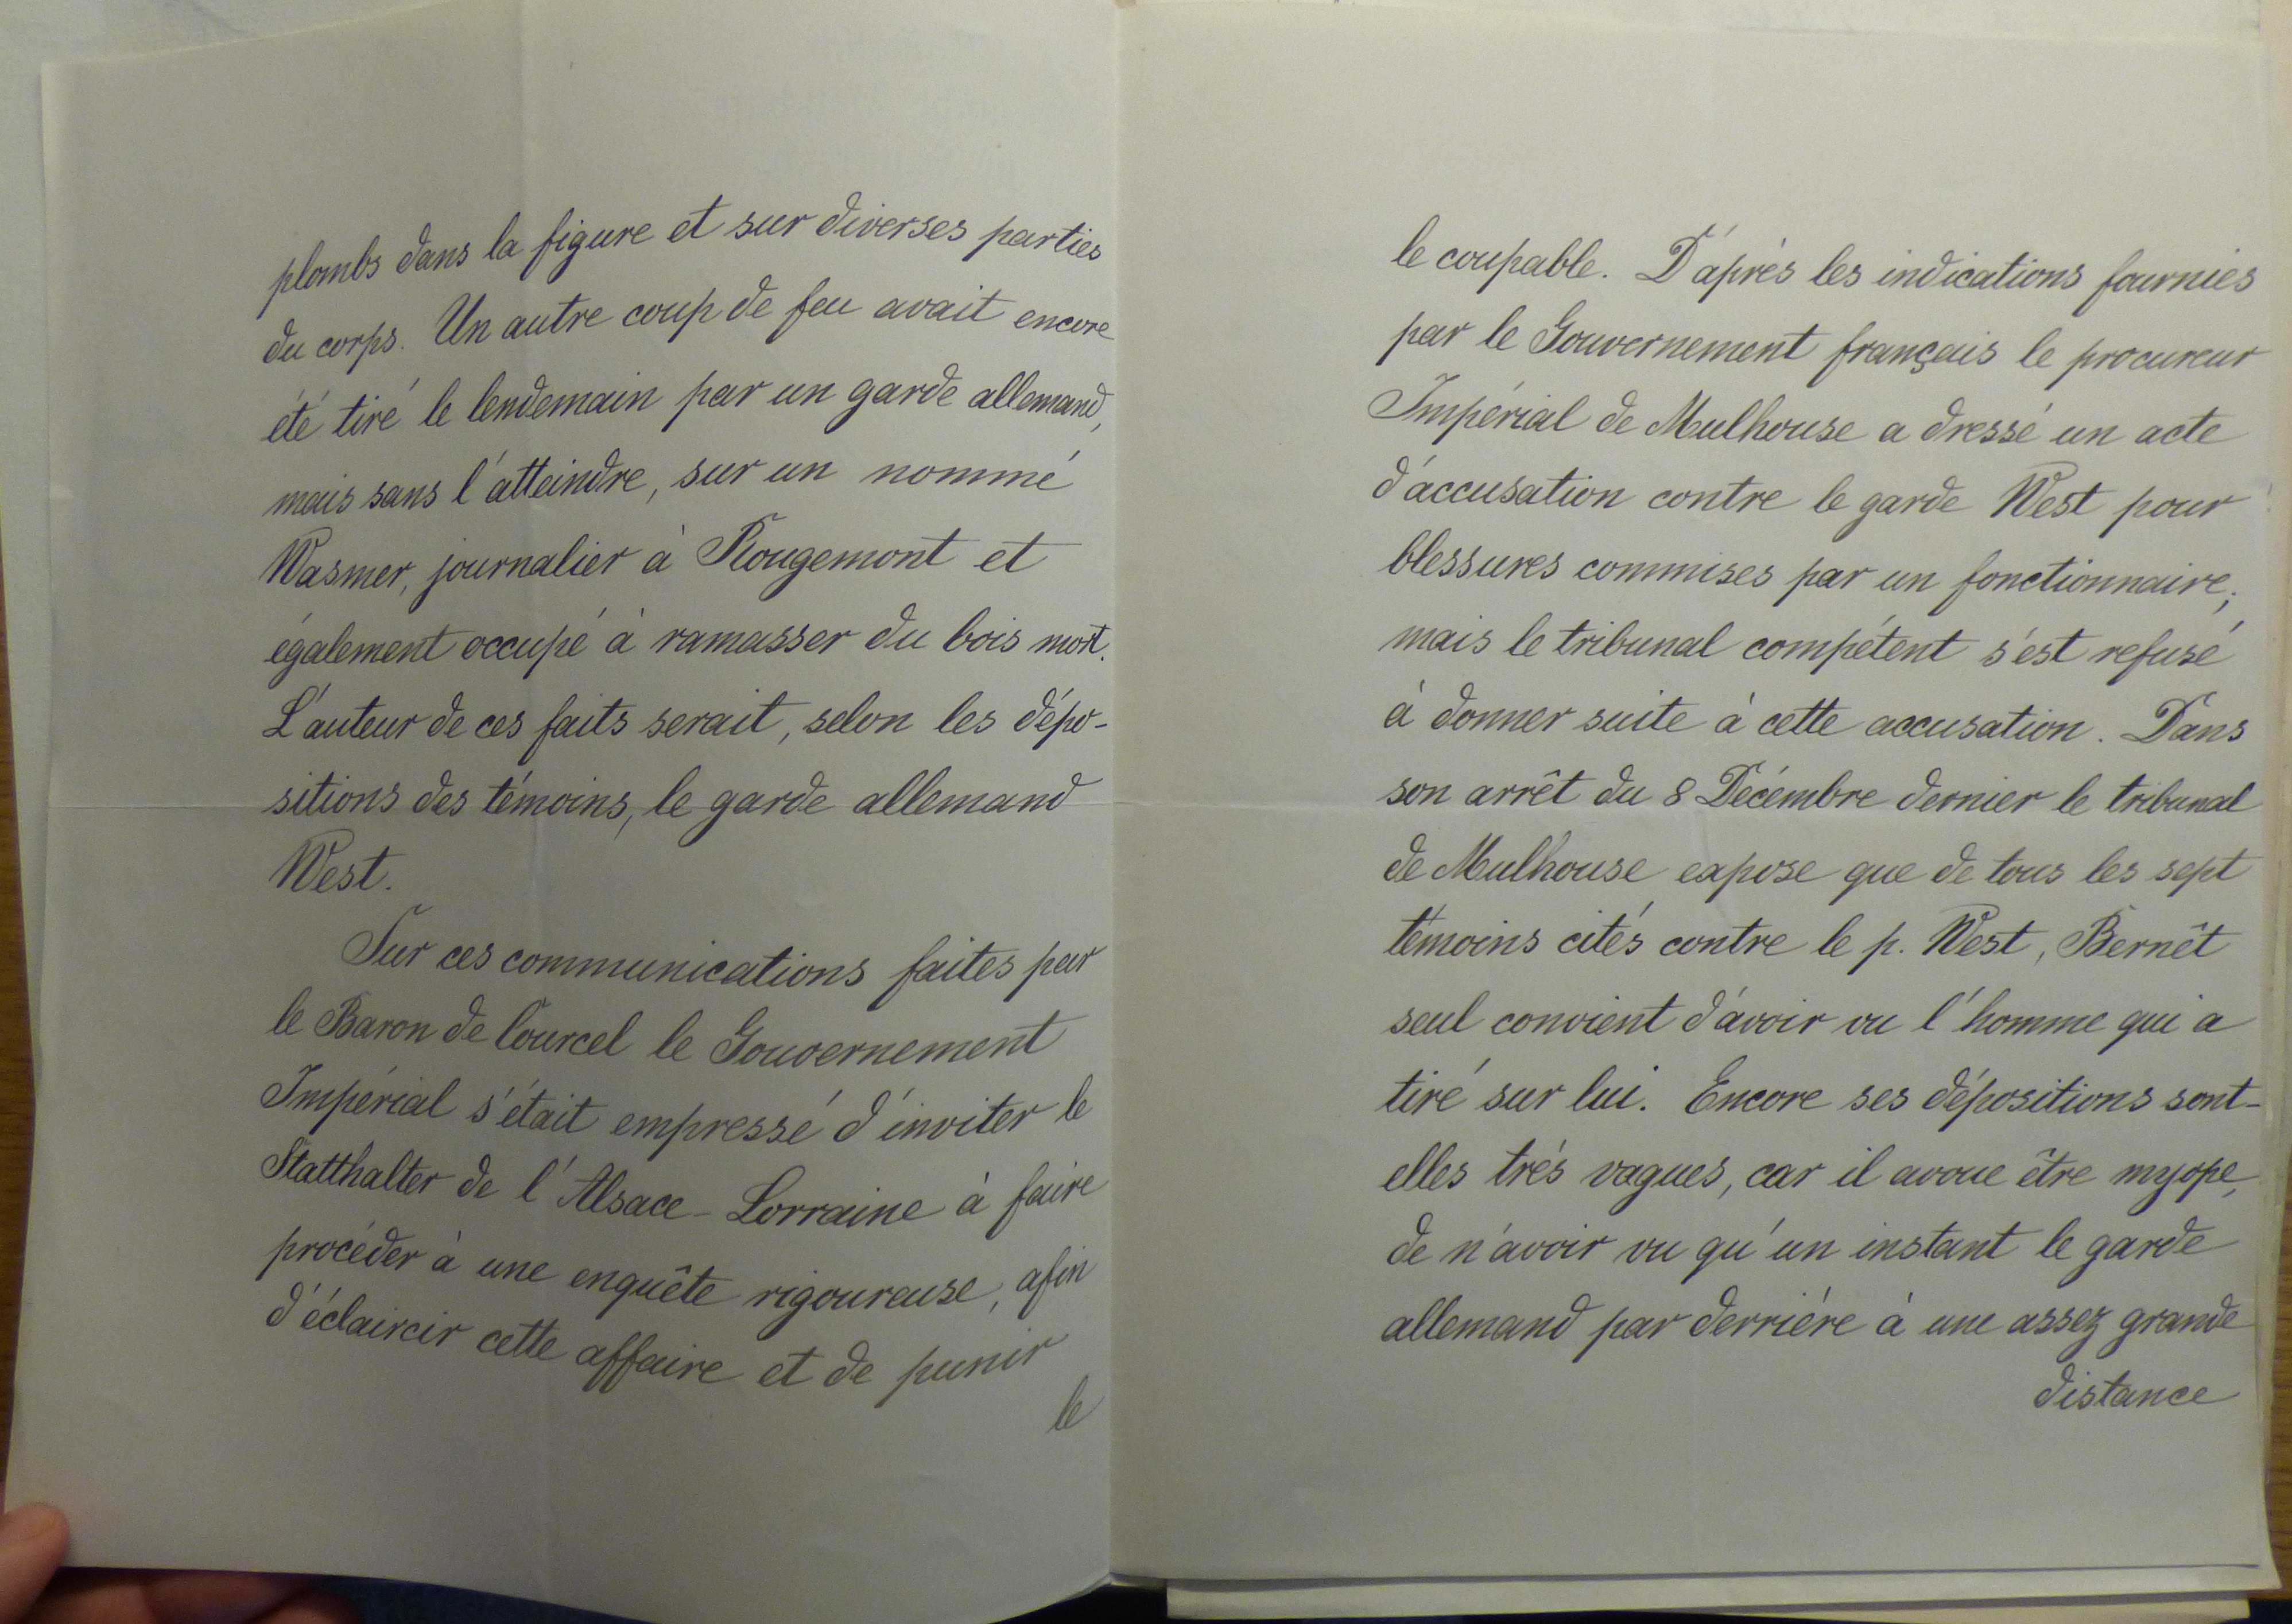 plombs dans la figure et sur diverses parties
du corps. Un autre coup de feu avait encore
été tiré le lendemain par un garde allemand,
mais sans l'atteindre, sur un nommé
Wasmer, journalier à Rougemont et
également occupé à ramasser du bois mort.
L'auteur de ces faits serait, selon les dépo-
sitions des témoins, le garde allemand
West.
Sur ces communications faites par
le Baron de Courcel le Gouvernement
Impérial s'était empressé d'inviter le
Statthalter de l'Alsace-Lorraine à faire
procéder à une enquête rigoureuse, afin
d'éclaircir cette affaire et de punir
le
le coupable. D'après les indications fournies
par le Gouvernement français le procureur
Impérial de Mulhouse a dressé un acte
d'accusation contre le garde West pour
blessures commises par un fonctionnaire;
mais le tribunal compétent s'est refusé
à donner suite à cette accusation. Dans
son arrêt du 8 Décembre dernier le tribunal
de Mulhouse expose que de tous les sept
témoins cités contre le p. West, Bernêt
seul convient d'avoir vu l'homme qui a
tiré sur lui. Encore ses dépositions sont-
elles très vagues, car il avoue être myope,
de n'avoir vu qu'un instant le garde
allemand par derrière à une assez grande
distance